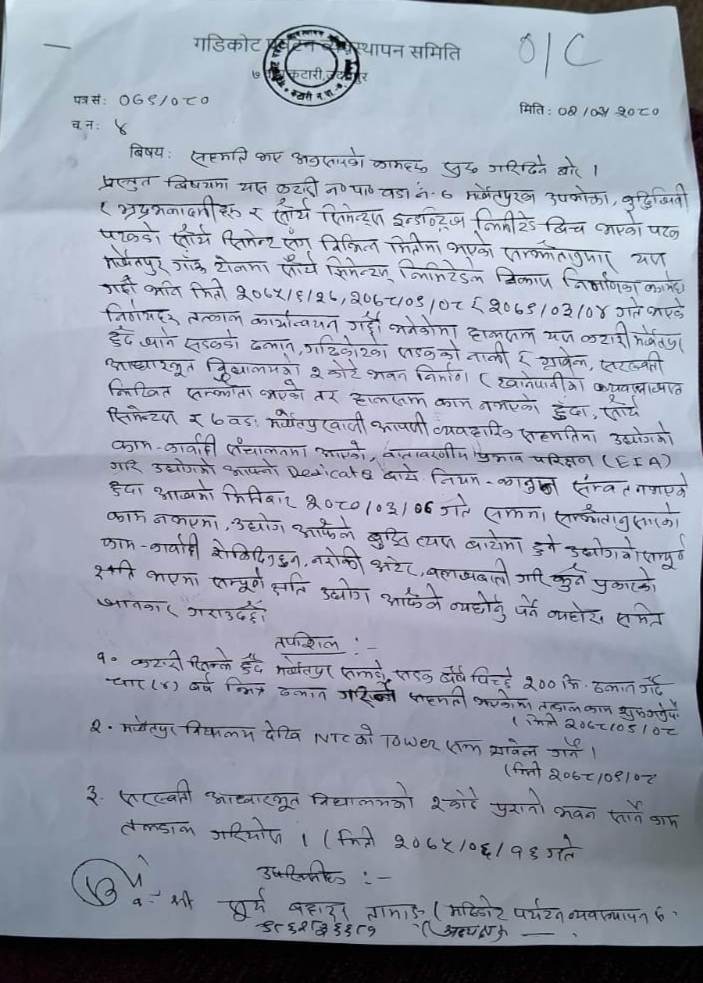 गडिकोट पर्यटन व्यवस्थापन समिति
कटारी, उदयपुर
O/C
पत्र सं: ०६९/०८०
मिति: ०२/०२/२०८०
च.नं: ४
बिषय: सहमति भए अनुसारको कामहरु सुरु गरिदिने बारे ।
प्रस्तुत बिषयमा यस कटारी न०पा० वडा नं. ७ मुर्खेतपुरका उपभोक्ता, बुद्धिजिवी
र भद्रभलादमीहरु र सौर्य सिमेन्टस इन्डस्ट्रिज लिमिटेड बिच भएको पटक
पटकको सौर्य सिमेन्ट संग बिभिन्न मितीमा भएको सम्झौतानुसार यस
गाँउ टोलमा सौर्य सिमेन्टस् लिमिटेडले बिकास निर्माणका कामहरु
गर्दै भनि मिती २०६५/६/२६, २०६८/०९/०८ र २०६९/०३/०४ गते भएको
निर्णयहरु तत्काल कार्यान्वयन गर्दै भनेकोमा हालसम्म यस कटारी
हुँदै जाने सडकको ढलान, गढिकोटका सडकको नाली र ग्राबेल, सरस्वती
आधारभूत विद्यालयको २ कोठे भवन निर्माण र खानेपानीको
लिखित सम्झौता भएको तर हालसम्म काम नभएको हुँदा, सौर्य
सिमेन्टस र ७ वडा आपसी व्यवहारिक सहमतिमा उद्योगको
काम-कार्वाही संचालनमा आएको, वातावरणीय प्रभाव परिक्षण (EIA)
गरि उद्योगको आफ्नो Dedicate बाटो नियम-कानुन संम्वत नभएको
हुदा आजको मितिबाट २०८०/०३/०६ गते सम्ममा सम्झौतानुसारको
काम नभएमा, उद्योग आफैले बुझि त्यस बाटोमा हुने उद्योगको सम्पूर्ण
काम-कार्वाही रोकिदिनुहुन, नरोकी अटेर, बलजफ्ती गरि कुनै प्रकारको
क्षति भएमा सम्पूर्ण क्षति उद्योग आफैले व्यहोर्नु पर्ने व्यहोरा समेत
जानकार गराउदछौं ।
तपशिल :-
१. कटारी हुँदै सम्मको सडक बर्षे पिच्छे २०० मि. ढलान गर्दै
चार (४) बर्ष भित्र ढलान गरिने सहमती भएकोमा तत्काल काम सुरु गर्नुपर्ने
(मिती २०६८/०९/०८
२. विद्यालय देखि NTC को TOWER सम्म ग्राबेल गर्ने ।
(मिती २०६८/०९/०८
३. सरस्वती आधारभूत विद्यालयको २ कोठे पुरानो भवन सार्ने काम
तत्काल गरियोस । (मिती २०६५/०६/१६ गते
उपस्थिति :-
१. श्री सूर्य बहादुर तामाङ (गढिकोट पर्यटन व्यवस्थापन स.
(अध्यक्ष)